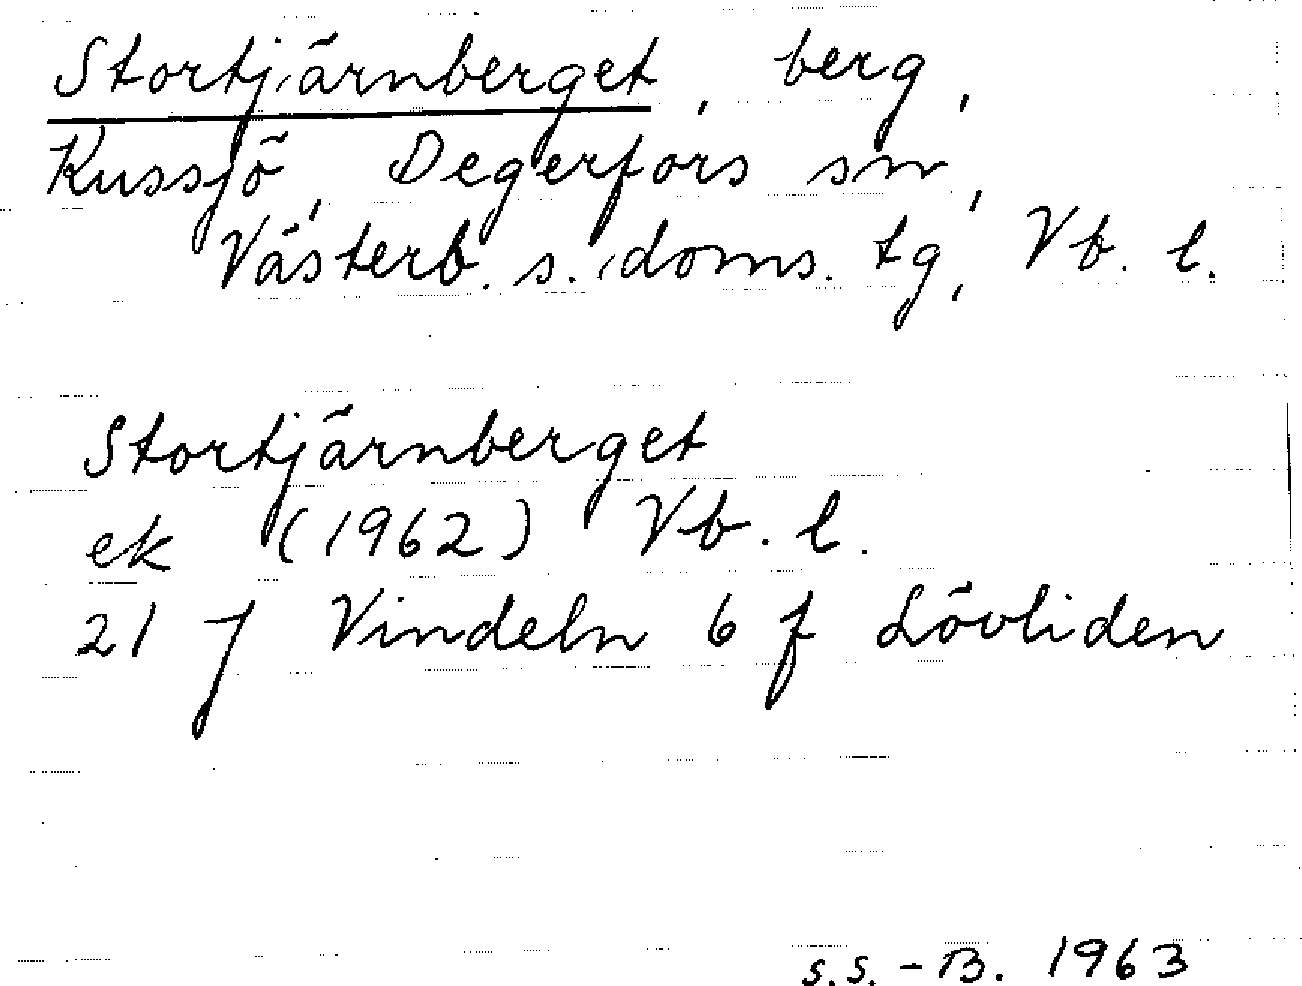 Stortjärnberget, berg,
Kussjö, Degerfors sn,
Västerb. s. doms. tg, Vb. l.
Stortjärnberget
ek (1962) Vb. l.
21 J Vindeln 6 f Lövliden
S.S.-B. 1963